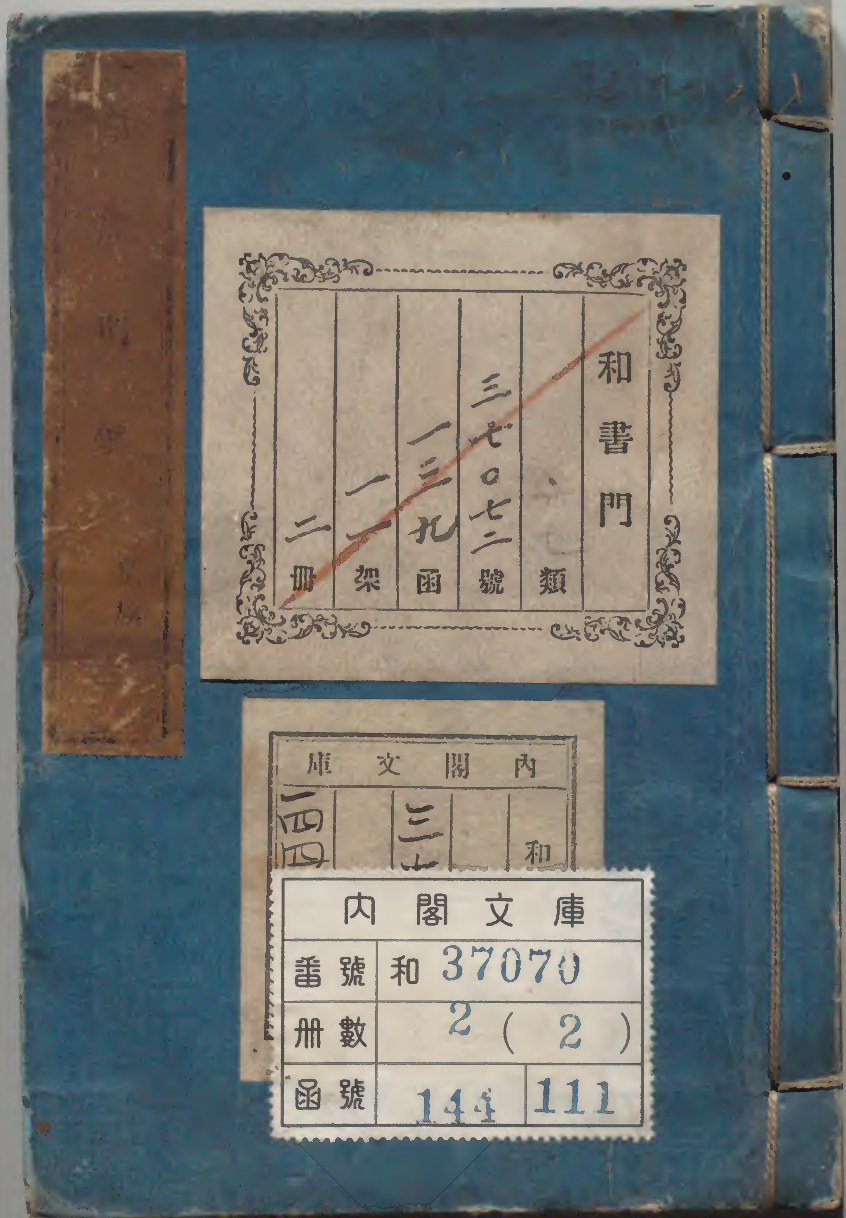 和書門
類
三七〇七二號
一三九函
一一架
二冊
內閣文庫
和
三七
一四四
內閣文庫
番號 和 37070
册數 2 ( 2 )
函號 144 111